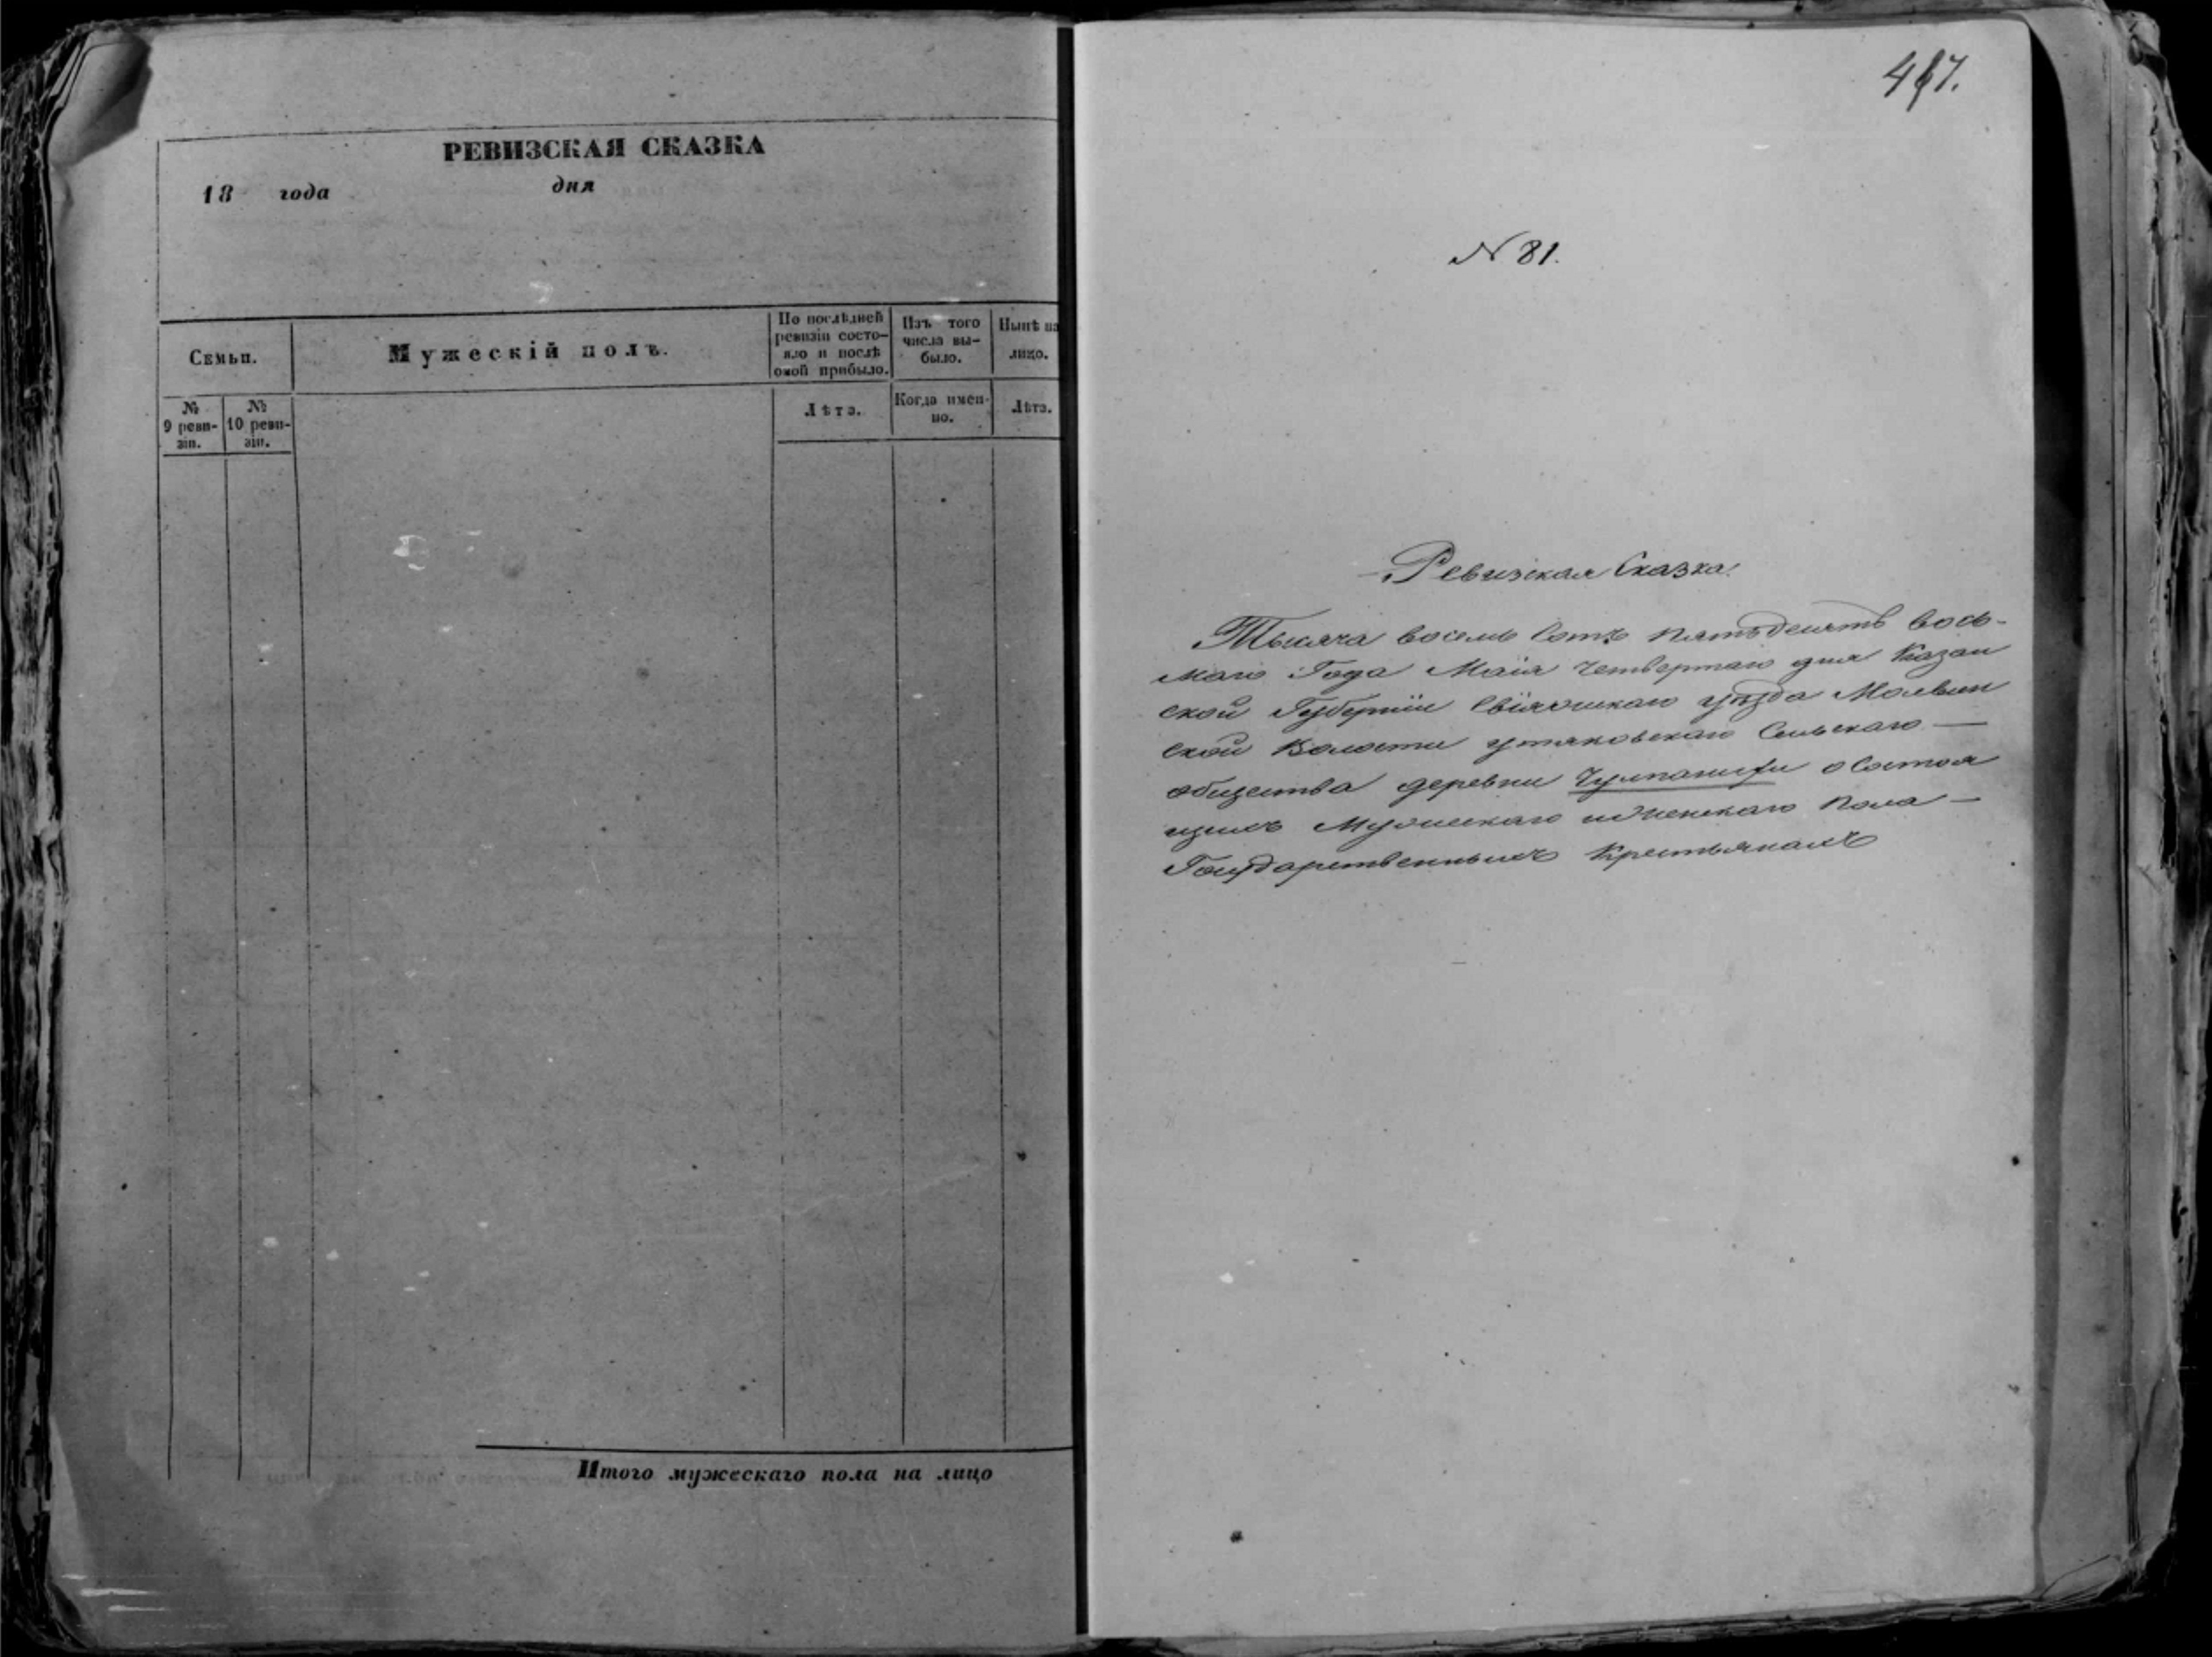 РЕВИЗСКАЯ СКАЗКА
18 года дня
Семьи.
Мужескій полъ.
По послѣдней
ревизіи состо-
яло и послѣ
оной прибыло.
Изъ того
числа вы-
было.
Нынѣ на
лицо.
№
9 реви-
зіи.
№
10 реви-
зіи.
Лѣта.
Когда имен-
но.
Лѣта.
Итого мужескаго пола на лицо
№ 81.
Ревизская Сказка.
Тысяча восемь сотъ пятьдесятъ вось-
маго Года Маія четвертаго дня Казан
ской Губерніи Свіяжскаго уѣзда Молвин
ской Волости утяковскаго Сельскаго
общества деревни о Состоя
щихъ Мужескаго и Женскаго пола
Государственныхъ Крестьянахъ